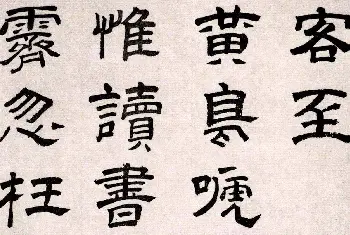 客至
黄鳥嗁
惟讀書
霽忽枉